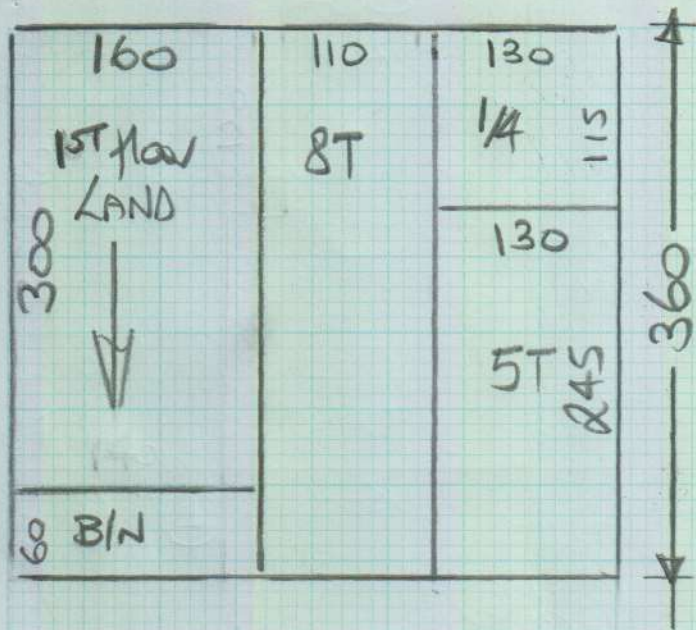 160
1ST floor
LAND
300
60
B/N
110
8T
130
1/4
115
130
5T
245
360